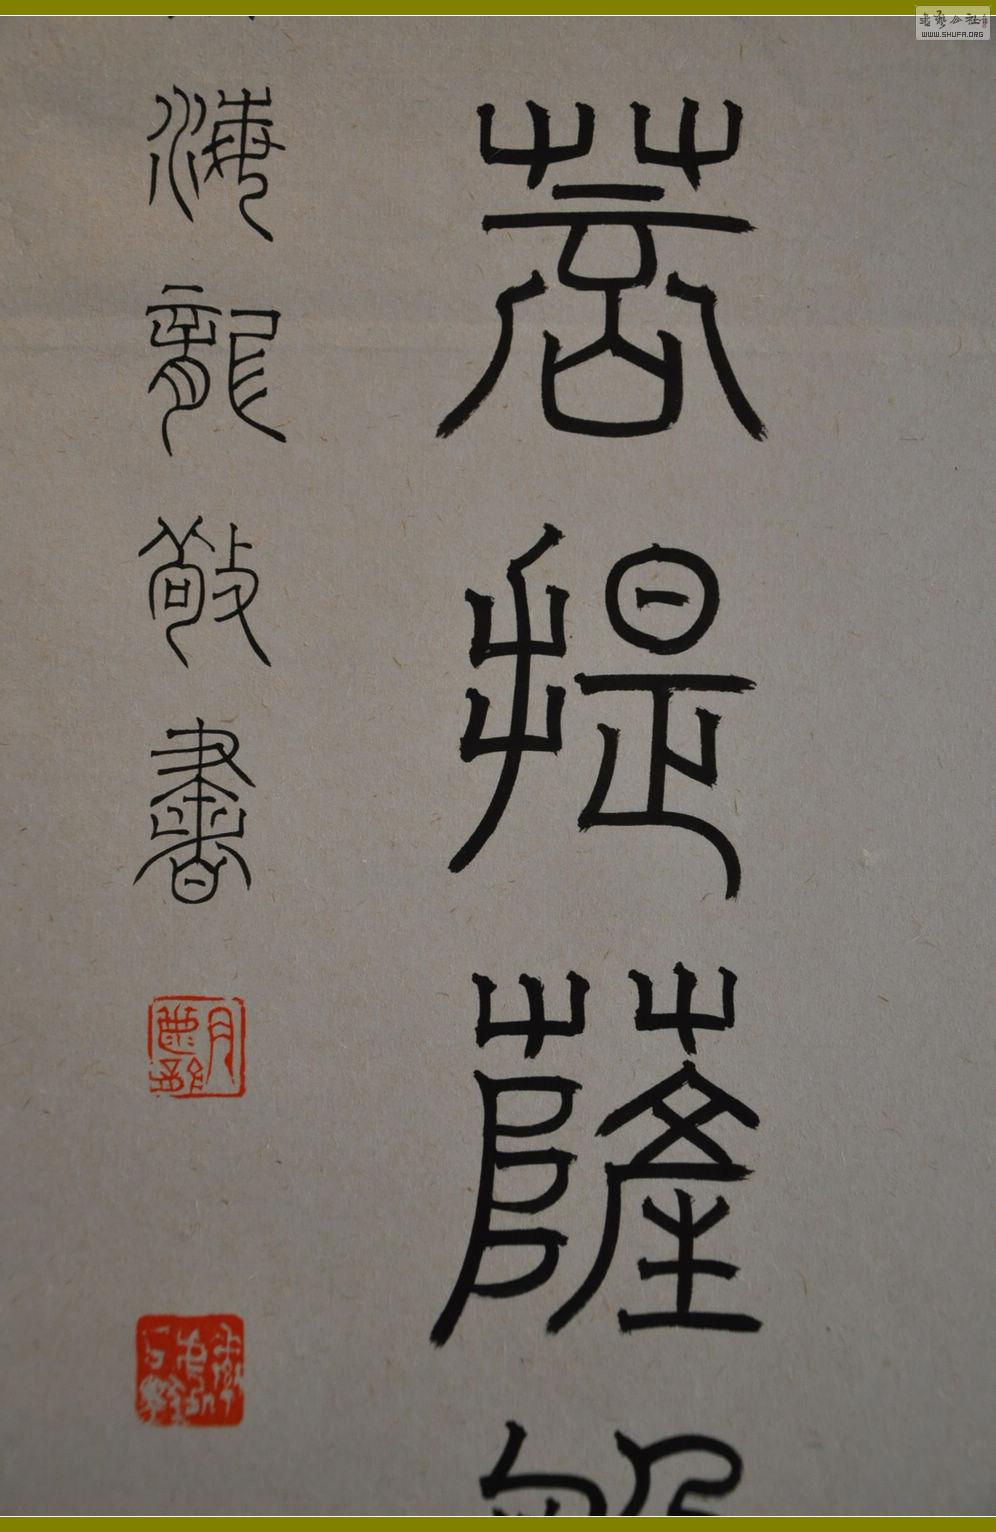 菩提薩
海龍敬書
書藝公社
WWW.SHUFA.ORG